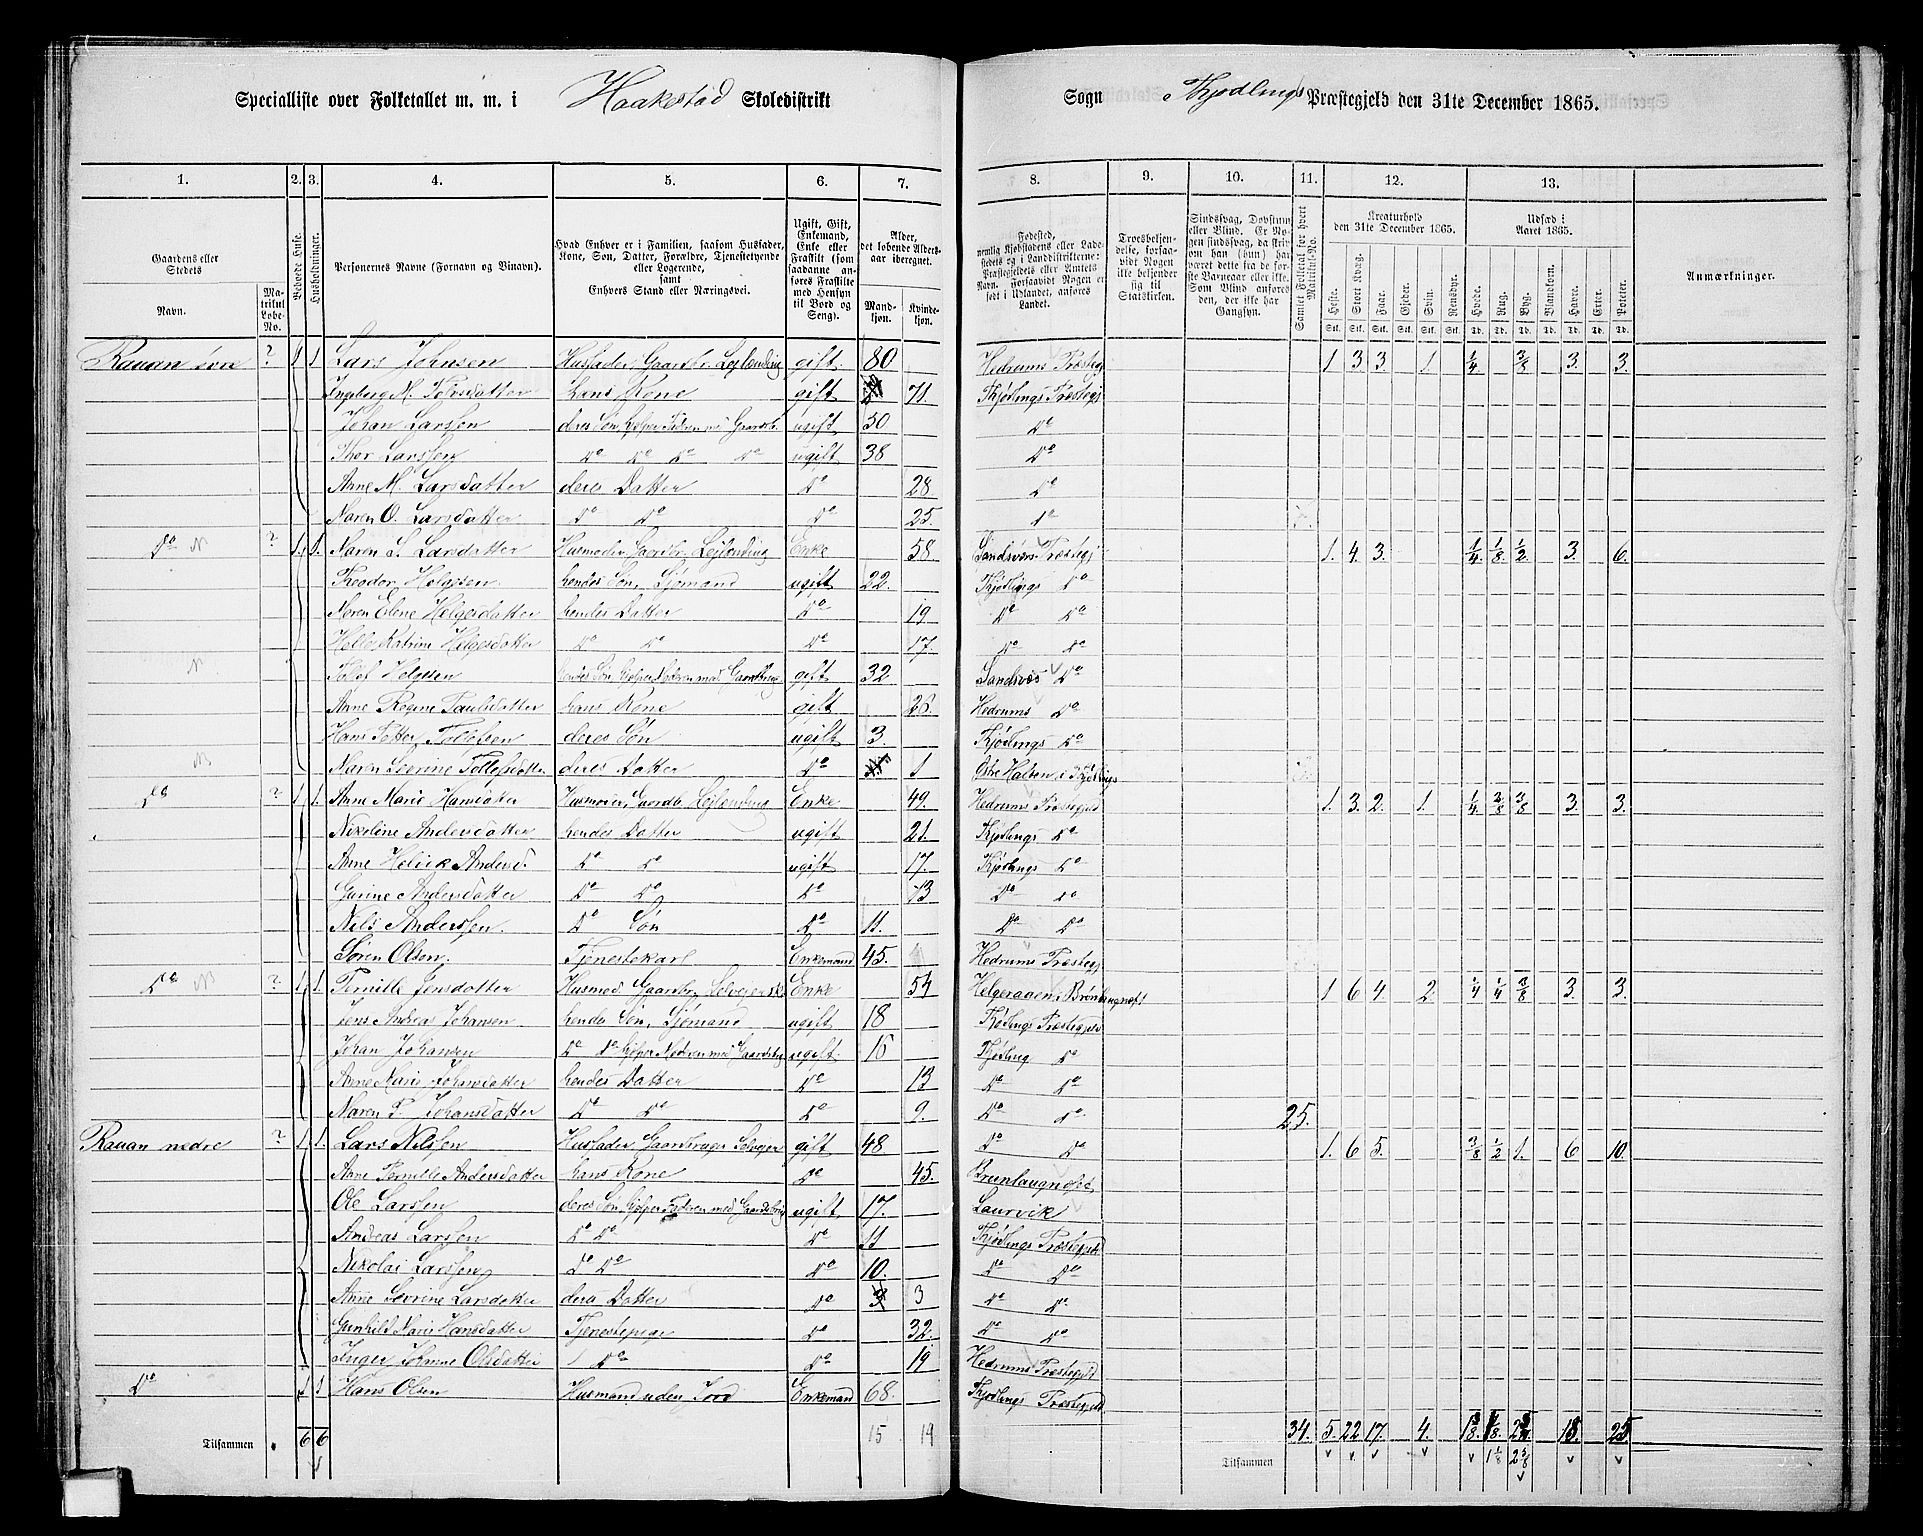 Specialliste over Folketallet m. m. i Haakestad Skoledistrikt Sogn Thjødlings Præstegjeld den 31te December 1865.
1. 2. 3. 4. 5. 6. 7. 8. 9. 10. 11. 12. 13.
Gaardens eller Stedets
Navn. Matrikul Løbe-No.
Beboede Huse.
Husholdninger.
Personernes Navne (Fornavn og Vinavn).
Hvad Enhver er i Familien, saasom Husfader, Kone, Søn, Datter, Forældre, Tjenestetyende eller Logerende, samt Enhvers Stand eller Næringsvei.
Ugift, Gift, Enkemand, Enke eller Fraskilt (som saadanne anføres Fraskilte med Hensyn til Bord og Seng).
Alder, det løbende Aldersaar iberegnet.
Mandkjøn. Kvindekjøn.
Fødested, nemlig Kjøbstadens eller Ladestedets og i Landdistrikterne: Præstegjeldets eller Amtets Navn. Forsaavidt Nogen er født i Udlandet, anføres Landet.
Troesbekjendelse, forsaavidt Nogen ikke bekjender sig til Statskirken.
Sindssvag, Døvstum eller Blind. Er Nogen sindssvag, da skrives om han (hun) har været dette fra de første Barneaar eller ikke. Som Blind anføres den, der ikke har Gangsyn.
Samlet Folketal for hvert Matrikul-No.
Kreaturhold den 31te December 1865.
Heste. Stort Kvæg. Faar. Gjeder. Svin. Rensdyr.
Udsæd i Aaret 1865.
Hvede. Rug. Byg. Blandkorn. Havre. Erter. Poteter.
Anmærkninger.
Rauan øvre ? 1 1 Lars Johnsen Husfader, Gaardbr. Lejlending gift 80 Hedrums Præstegj 1 3 3 1 1/4 3/8 3 3
Ingeborg M. Tolvsdatter Hans Kone gift 71. Thjødlings Præstegj
Johan Larssen deres Søn, hjelper Faderen ved Gaardsb. ugift 30 do
Thor Larssen do do do do ugift 38 do
Anne M. Larsdatter deres Datter do 28 do
Maren O. Larsdatter do do do 25. do
do N ? 1 1 Maren S. Larsdatter Husmoder, Gaardbr. Lejlending Enke 58 Sandsvørs Præstegj 1. 4 3. 1/4 1/8 1/2 3. 6.
Theodor Helgesen hendes Søn, Sjømand ugift 22 Thjødlings do
Maren Elene Helgesdatter hendes Datter do 19 do do
Helle Katrine Helgesdatter do do do 17. do do
N Tollef Helgesen hendes Søn, hjelper Moderen med Gaardsbrug gift 32 Sandsvøs do
Anne Regine Paulsdatter hans Kone gift 26 Hedrums do
Hans Petter Tollefsen deres Søn ugift 3. Thjødlings do
N Maren Severine Tollefsdatter deres Datter do 1 Østre Halsen i Thjødlings
do ? 1 1. Anne Marie Hansdatter Husmoder, Gaardb. Lejlending Enke 49. Hedrums Præstegjeld 1. 3 2. 1. 1/4 3/8 3/8 3. 3.
Nikoline Andersdatter hendes Datter ugift 21. Thjødlings do
Anne Helvik Andersd. do do ugift 17. Thjødlings do
Gurine Andersdatter do do do 13 do do
Nils Anderssen. do Søn do 11. do do
Søren Olsen. Tjenestekarl Enkemand 45. Hedrums Præstegj
do N ? 1 1. Pernille Jensdatter Husmod. Gaardbr. Selvejerske Enke 54 Helgeraaen i Brunlaugnæs 1 6 4. 2. 1/4 1/4 3/8 3. 3.
Jens Andreas Johansen hendes Søn, Sjømand ugift 18 Thjødlings Præstegjeld
Johan Johansen do do hjelper Moderen med Gaardsbrug ugift. 16 Thjødling do
Anne Marie Johansdatter hendes Datter do 13 do do
Maren P. Johansdatter do do do 9. do do 25.
Rauan nedre ? 1 1. Lars Nilssen Husfader, Gaardbruger Selvejer gift 48. do do 1. 6 5. 3/8 1/2 1. 6 10.
Anne Pernille Andersdatter hans Kone do 45. Brunlaugnæs
Ole Larssen deres Søn, hjelper Faderen med Gaardsbrug ugift 17. Laurvik
Andreas Larssen do do do 11 Thjødlings Præstegjeld
Nikolai Larssen do do do 10. do do
Anne Severine Larsdatter dera Datter do 3 do do
Gunhild Marie Hansdatter Tjenestepige do 32. do do
Inger Johanne Olsdatter do do 19 Hedrums Præstegjeld
do 1 1 Hans Olsen Husmand uden Jord Enkemand 68. Thjødlings Præstegjeld
Tilsammen 6 6 15 19 Tilsammen 34. 5. 22 17. 4. 18. 25
1 1/8 2 5/8